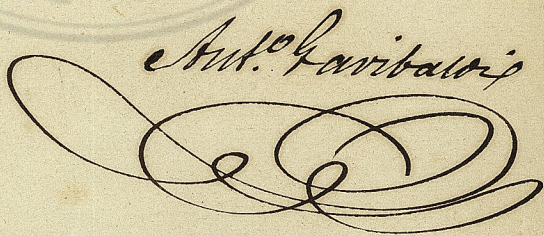 Anto. Garibaldi